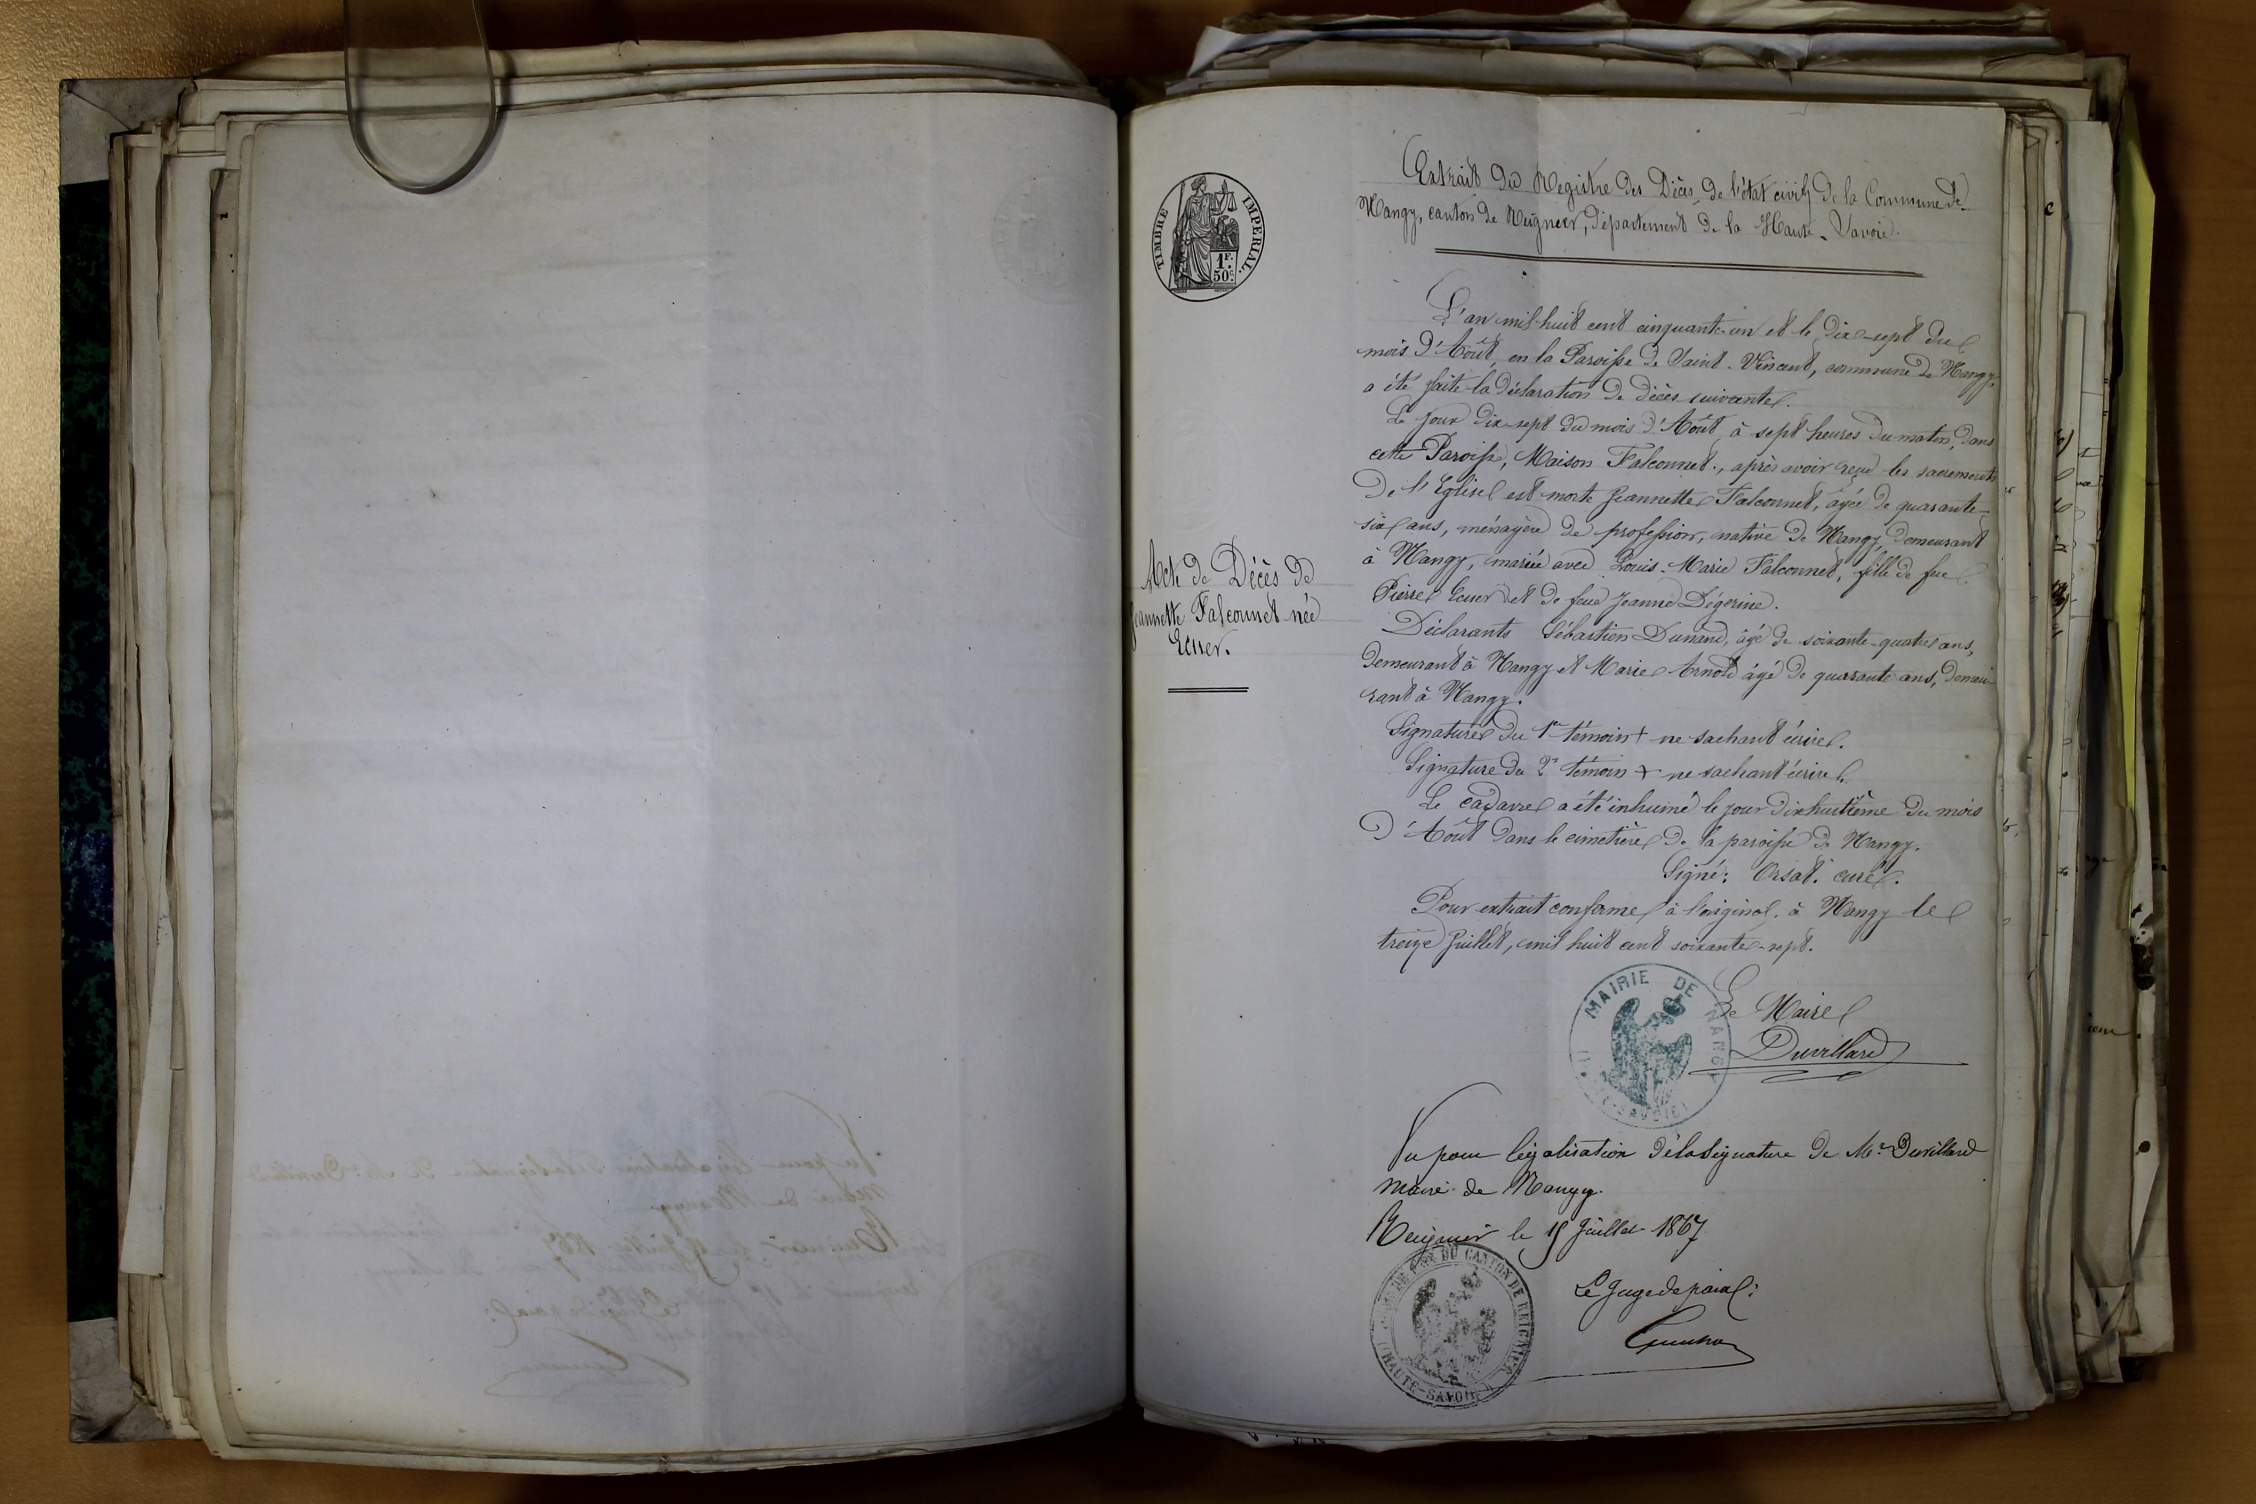 TIMBRE IMPERIAL.
1F.
50c.
Extrait du Registre des Décès de l'état civil de la Commune de
Nangy, canton de Reignier, département de la Haute-Savoie.
L'an mil huit cent cinquante-un et le dix-sept du
mois d'Août, en la Paroisse de Saint-Vincent, commune de Nangy,
a été faite la déclaration de décès suivante.
Le jour dix-sept du mois d'Août à sept heures du matin, dans
cette Paroisse, Maison Falconnet, après avoir reçu les sacrements
de l'Eglise est morte Jeannette Falconnet, agée de quarante-
six ans, ménagère de profession, native de Nangy, demeurant
à Nangy, mariée avec Louis-Marie Falconnet, fille de feu
Pierre Ecuer et de feue Jeanne Dégerine.
Acte de Décès de
Jeannette Falconnet née
Ecuer.
Déclarants Sébastien Dunand, âgé de soixante-quatre ans,
demeurant à Nangy et Marie Arnold âgé de quarante ans, demeu-
rant à Nangy.
Signature du 1er témoin + ne sachant écrire.
Signature du 2e témoin + ne sachant écrire.
Le cadavre a été inhumé le jour dixhuitième du mois
d'Août dans le cimetière de la paroisse de Nangy.
Signé: Orsat. curé.
Pour extrait conforme à l'original. à Nangy le
treize Juillet, mil huit cent soixante-sept.
MAIRIE DE NANGY
Le Maire
Duvillard
Vu pour légalisation de la signature de Mr Duvillard
maire de Nangy.
Reignier le 15 Juillet 1867
Le Juge de paix:
DU CANTON DE REIGNIER
(HAUTE-SAVOIE)